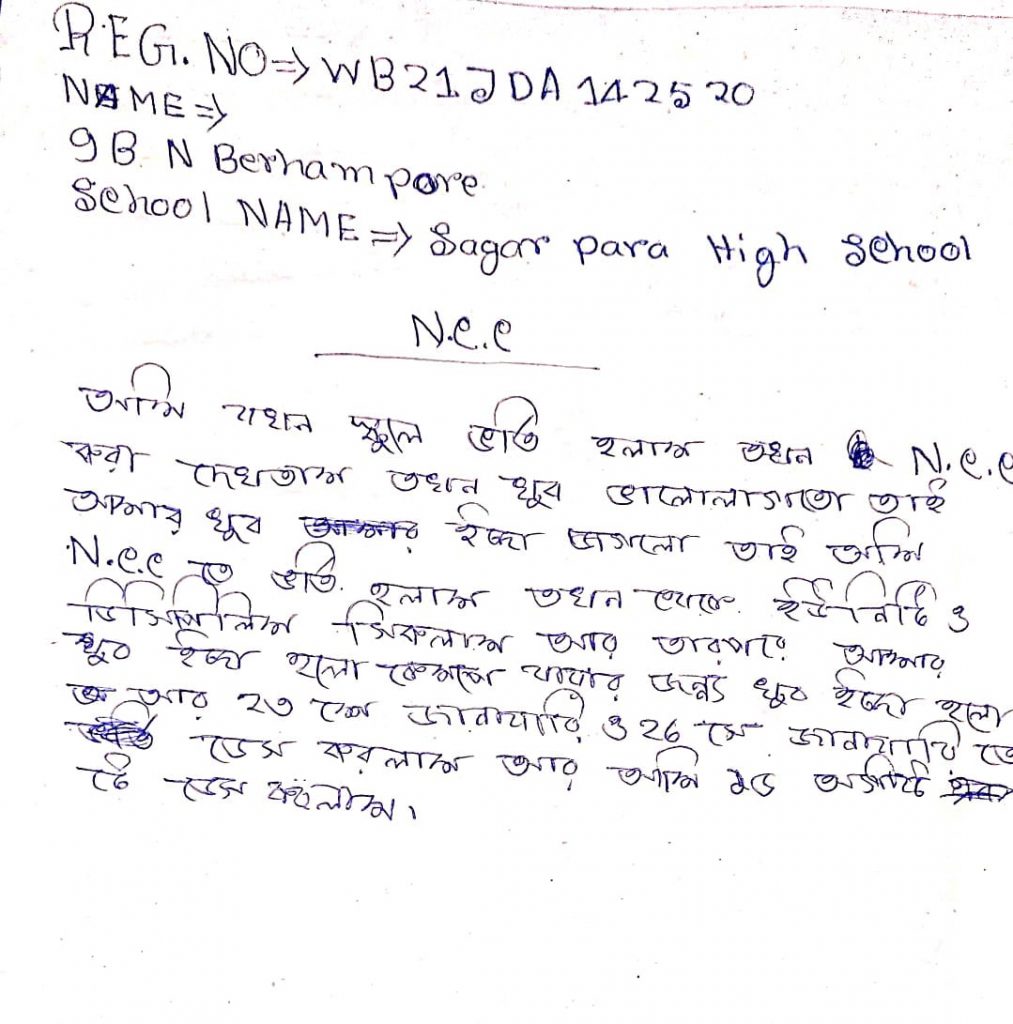 REG. NO⇒ WB21JDA142520
NAME⇒
9 B N Berhampore
School NAME⇒ Sagar para High School
N.C.C
আমি যখন স্কুলে ভর্তি হলাম তখন N.C.C
করা দেখতাম তখন খুব ভালোলাগতো তাই
আমার খুব ইচ্ছা জাগলো তাই আমি
N.C.C তে ভর্তি হলাম তখন থেকে ইউনিটি ও
ডিসিপিলিন শিকলাম আর তারপরে আমার
খুব ইচ্ছা হলো কেম্পে যাবার জন্য খুব ইচ্ছা হলো
আর ২৩ শে জানুয়ারি ও 26 সে জানুয়ারি তে
ডেস করলাম আর আমি
টে ডেস করলাম।